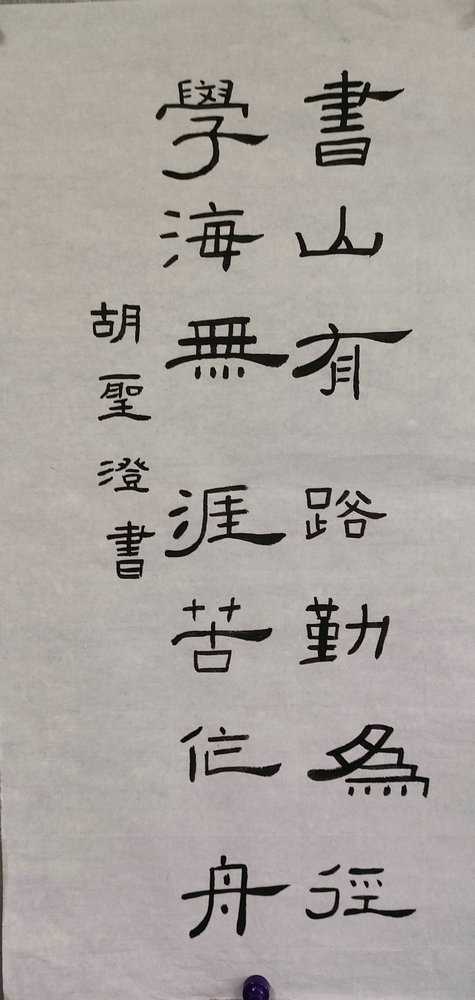 書山有路勤為徑
學海無涯苦作舟
胡聖澄書